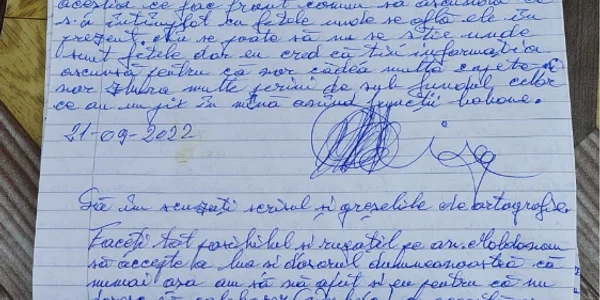 aceștia ce fac front comun să ascundă ce
s-a întîmplat cu fetele unde se află ele în
prezent. Nu se poate să nu se știe unde
sunt fetele dar eu cred că ții informația
ascunsă pentru ca vor cădea multe capete și
vor zbura multe perini de sub fundul celor
ce au un pix în mînă avînd funcții babane.
21-09-2022
Să îm scuzați scrisul și greșelile de ortografie.
Faceți tot posibilul si rugațil pe an. Moldovan
să accepte a lua si dosarul dumneavoastră că
numai asa am să mă ajut si eu pentru că nu